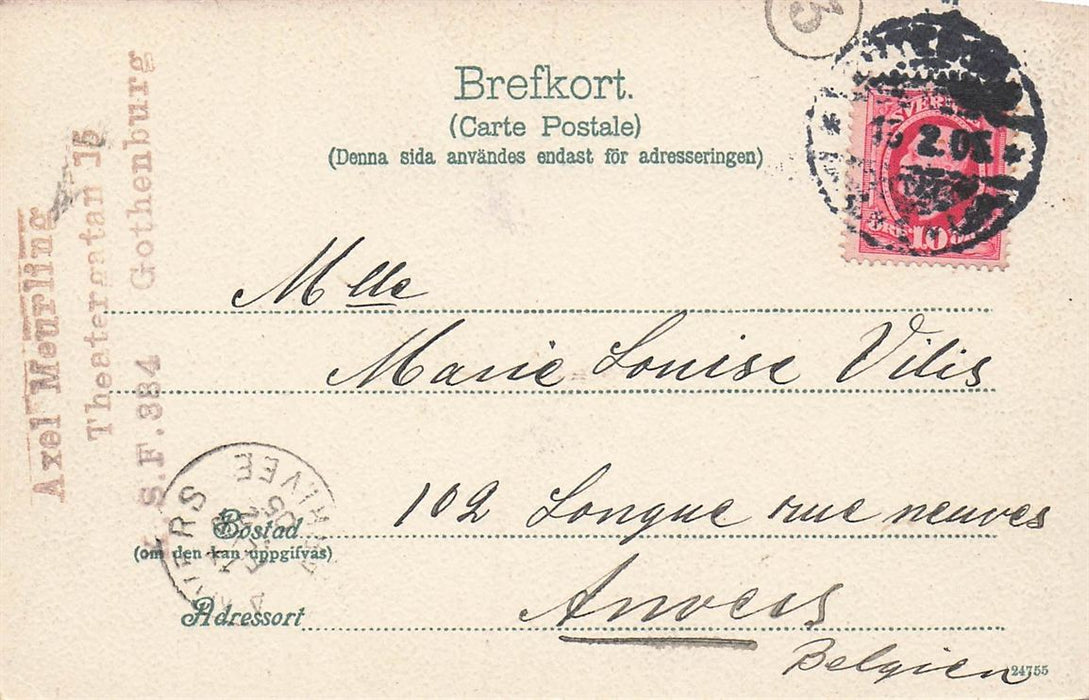 Brefkort.
(Carte Postale)
(Denna sida användes endast för adresseringen)
3
SVERIGE
2.05
ÖRE 10 ÖRE
Axel Meurling
Theatergatan 15
Gothenburg
S.F. 334
Mlle
Marie Louise Vilis
102 Longue rue neuves
Bostad
(om den kan uppgifvas)
Adressort
Anvers
Belgien
ANVERS
ARRIVEE
24755